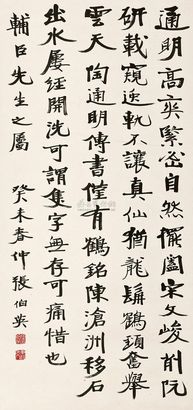 通明高爽緊密自然擺闔宋文峻削阮
研載窺逸軌不讓真仙猶龍髯鶴頸奮舉
雲天陶通明傳書僅有鶴銘陳滄洲移石
出水屢經開洗可謂集字無存可痛惜也
輔臣先生之屬 癸未春仲張伯英